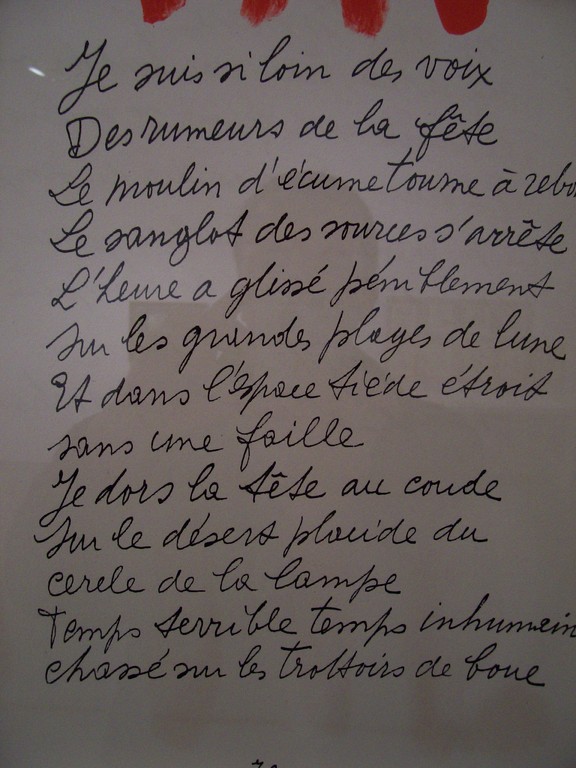 Je suis si loin des voix
Des rumeurs de la fête
Le moulin d'écume tourne à rebo
Le sanglot des sources s'arrête
L'heure a glissé péniblement
sur les grandes plages de lune
Et dans l'espace tiède étroit
sans une faille
Je dors la tête au coude
sur le désert placide du
cercle de la lampe
Temps terrible temps inhumain
chassé sur les trottoirs de boue